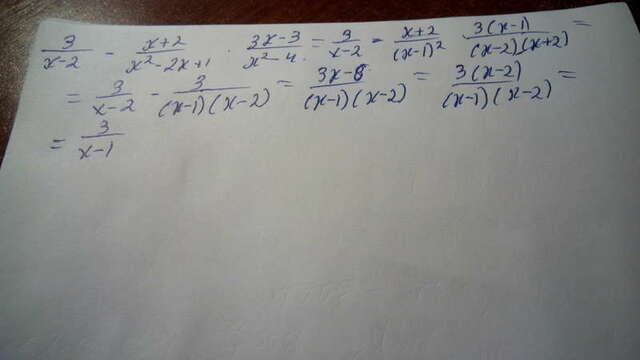 3/(x-2) - (x+2)/(x²-2x+1) · (3x-3)/(x²-4) = 3/(x-2) - (x+2)/(x-1)² · 3(x-1)/((x-2)(x+2)) =
= 3/(x-2) - 3/((x-1)(x-2)) = (3x-6)/((x-1)(x-2)) = 3(x-2)/((x-1)(x-2)) =
= 3/(x-1)